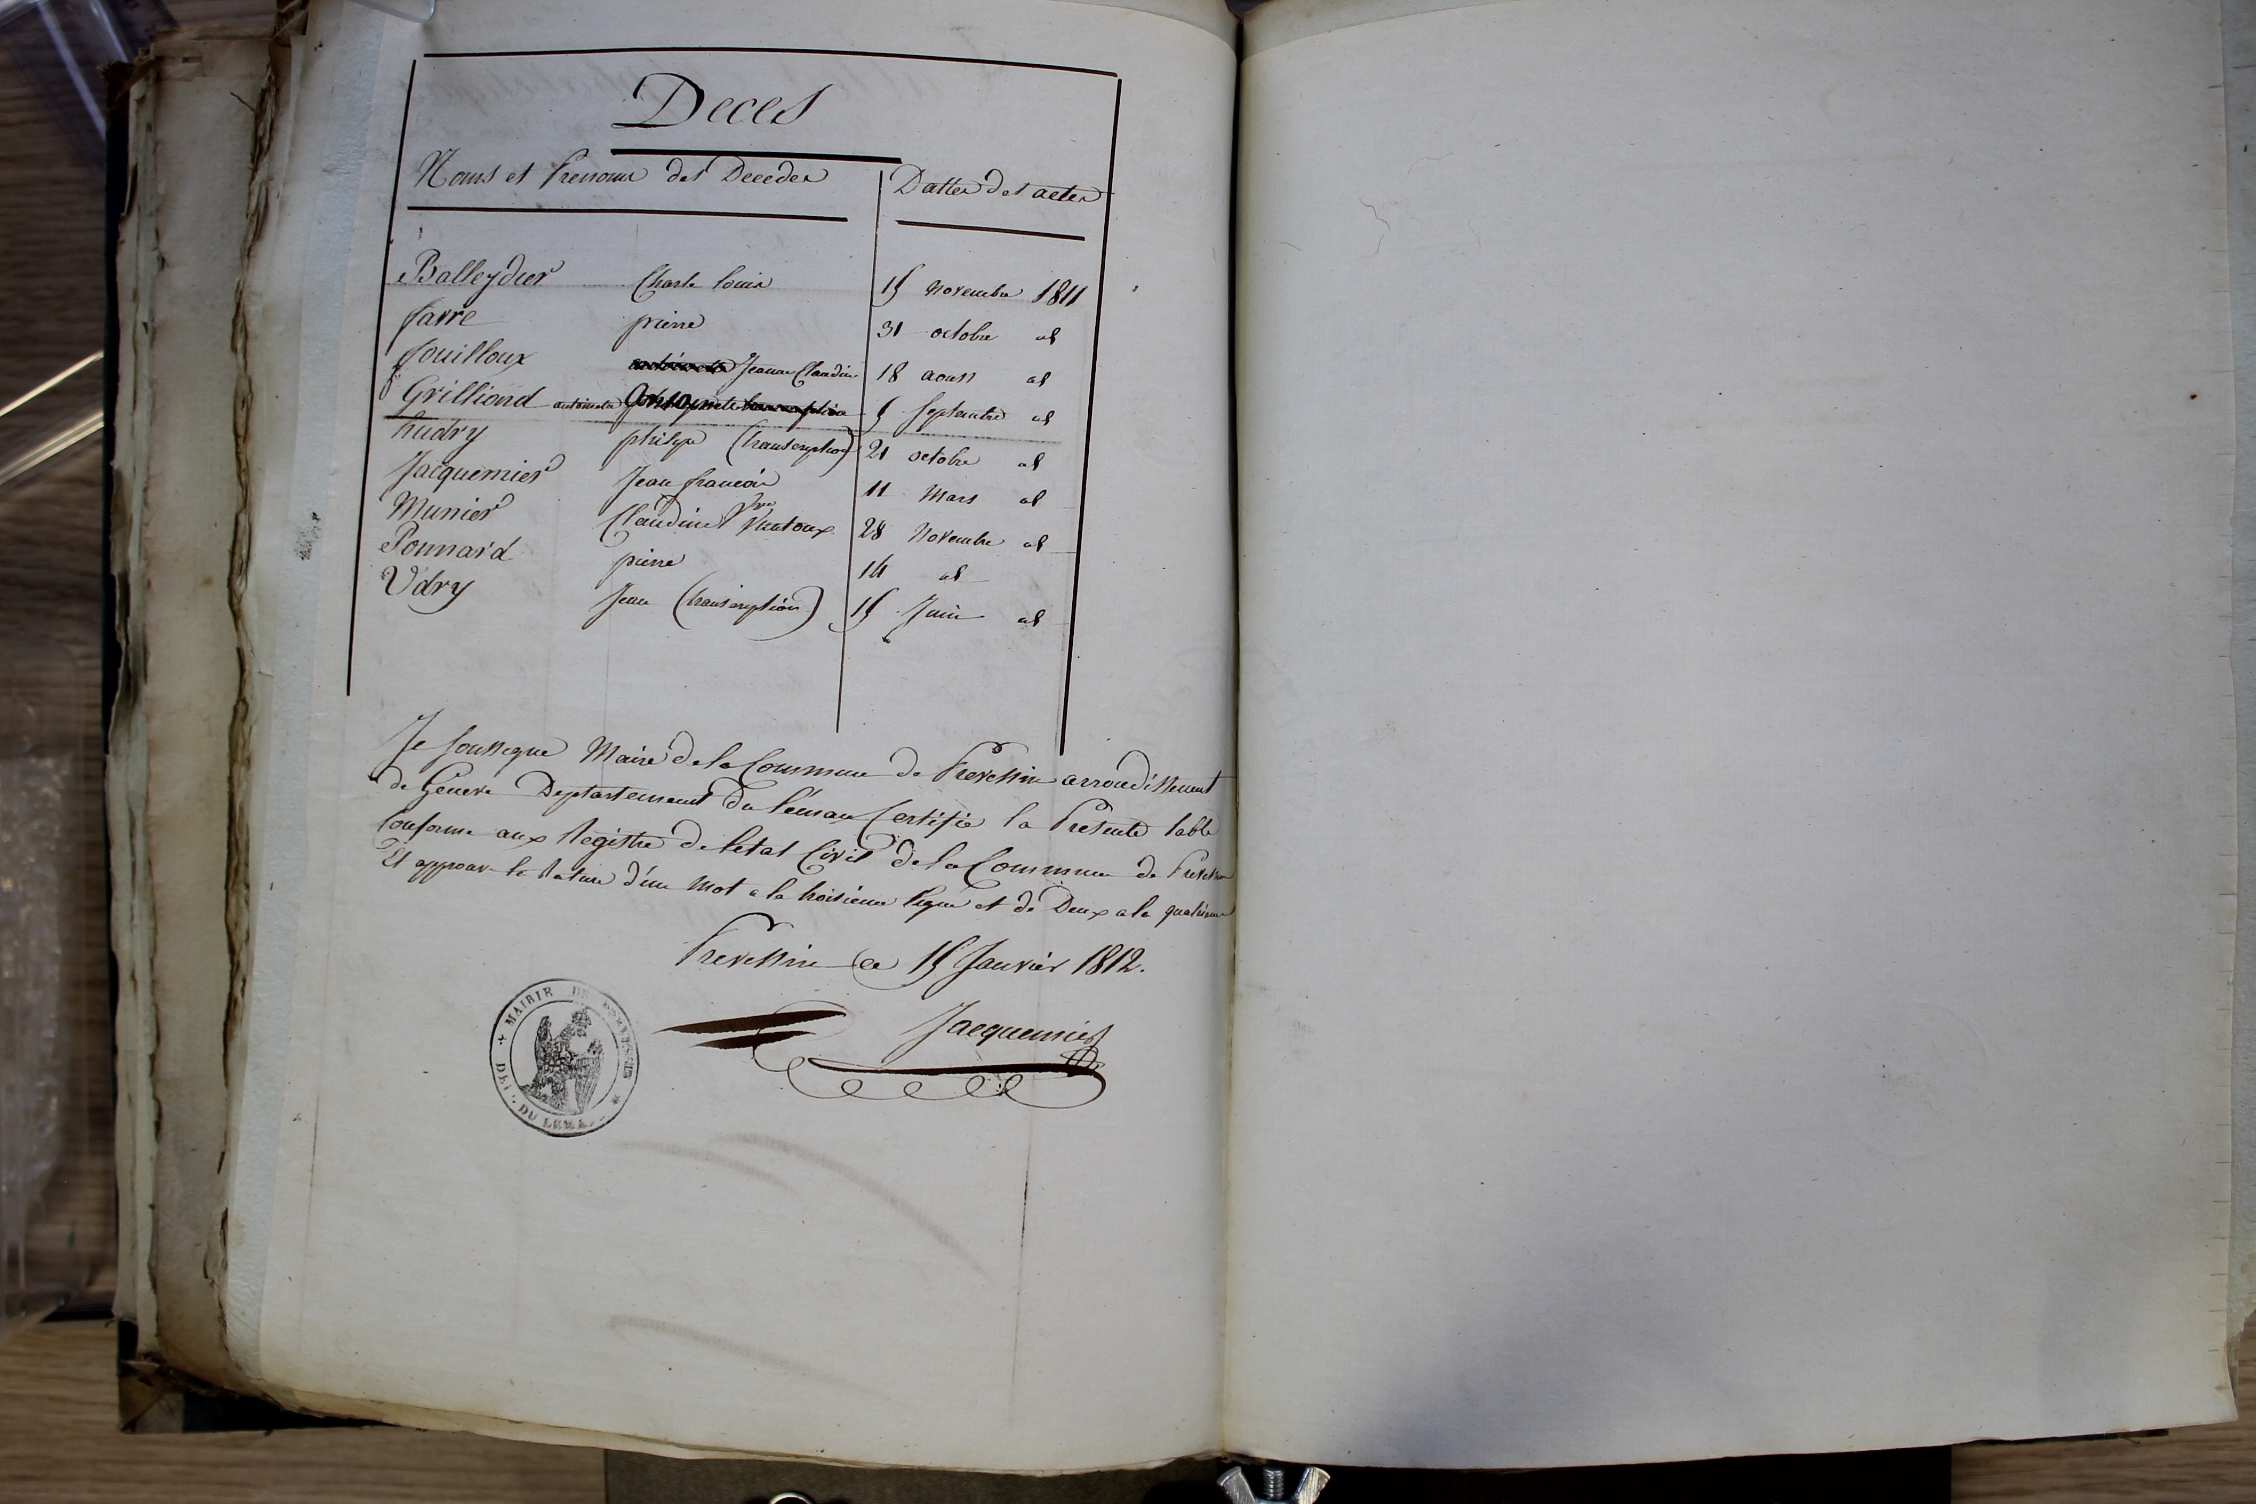 Deces
Noms et Prenoms des Decedes Dattes des actes
Balleydier Charle Louis 15 novembre 1811
favre pierre 31 octobre id
fouilloux antoinette Jeanne Claudine 18 aoust id
Grilliond antoinette 5 septembre id
hudry philipe (transcription) 21 octobre id
Jacquemier Jean francois 11 Mars id
Munier Claudine Vve 28 Novembre id
Ponnard pierre 14 id
Vdry Jean (transcription) 15 Juin id
Je sousigne Maire de la Commune de Prevessin arrondissement
de Géneve Deptartement du Léman Certifie la Presente table
Conforme aux Registre de letat Civil de la Commune de Prevessin
Et approuve la Rature d'un Mot a la troisieme ligne et de Deux a la quatrieme
Prevessin Ce 15 Janvier 1812.
Jacquemier
MAIRIE DE PREVESSIN
DEP. DU LEMAN